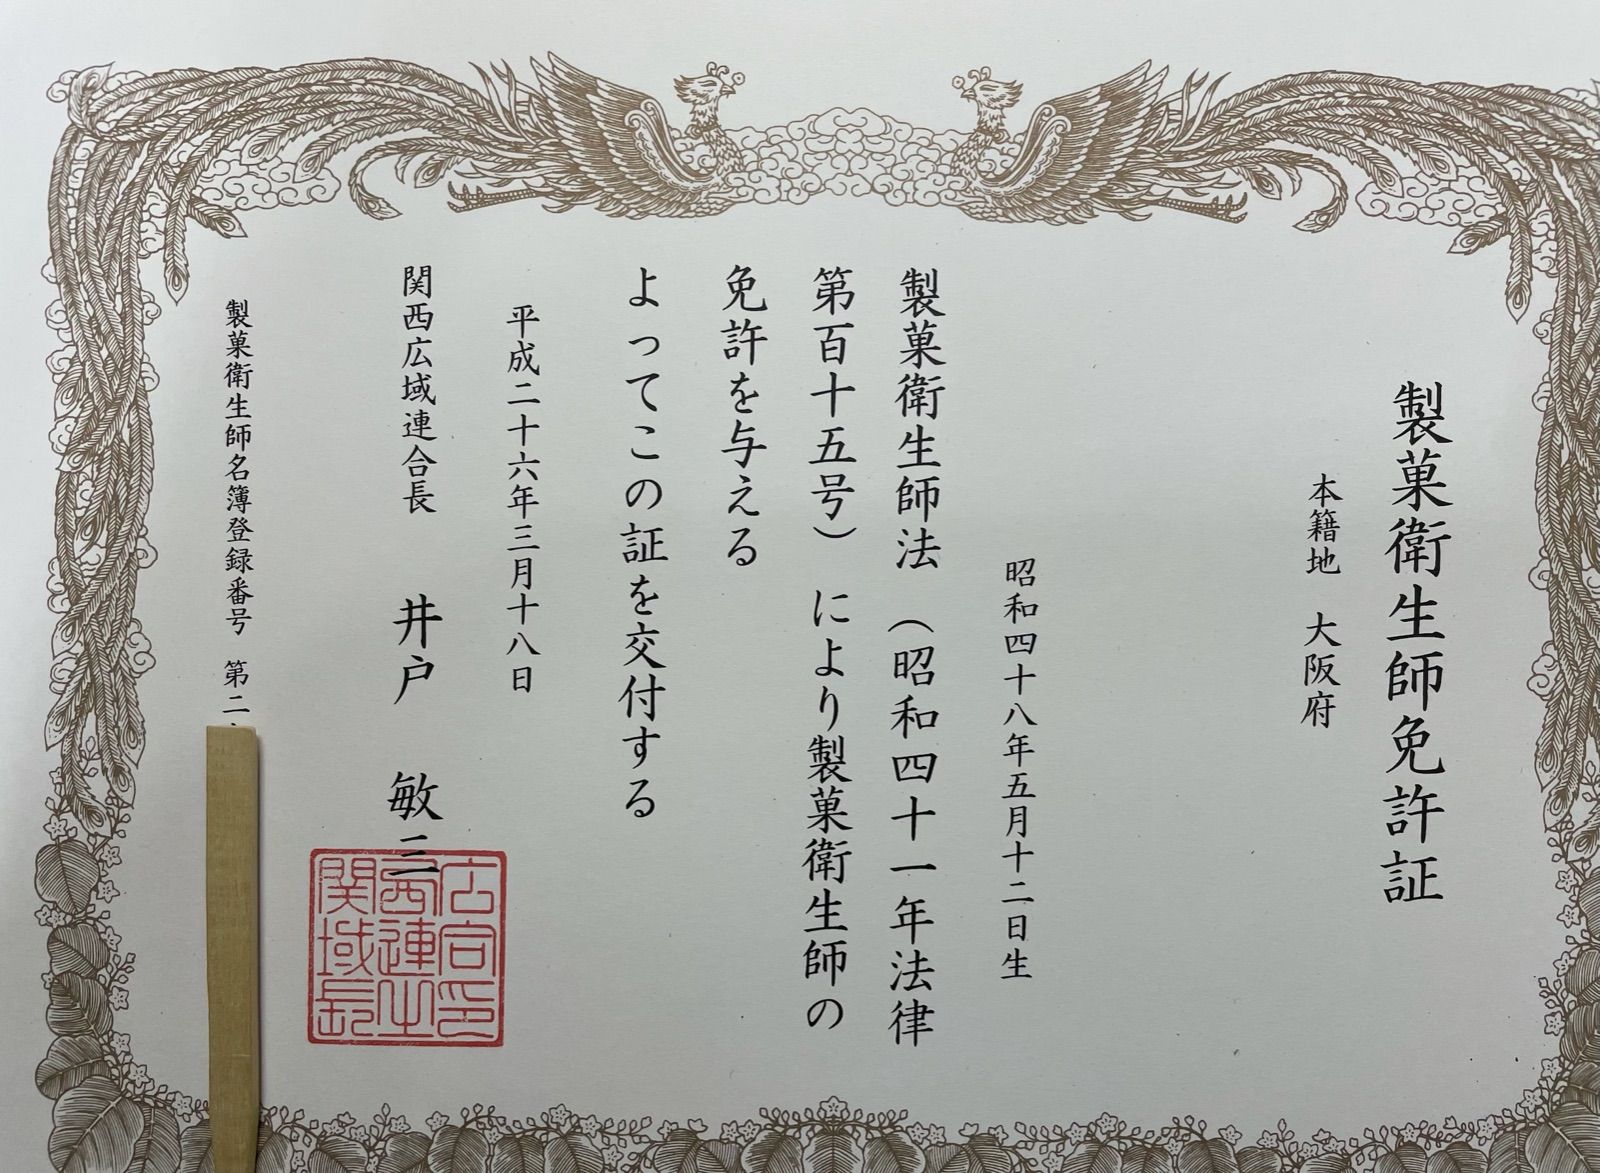 製菓衛生師免許証
本籍地　大阪府
昭和四十八年五月十二日生
製菓衛生師法（昭和四十一年法律
第百十五号）により製菓衛生師の
免許を与える
よってこの証を交付する
平成二十六年三月十八日
関西広域連合長　井戸　敏三
製菓衛生師名簿登録番号　第二